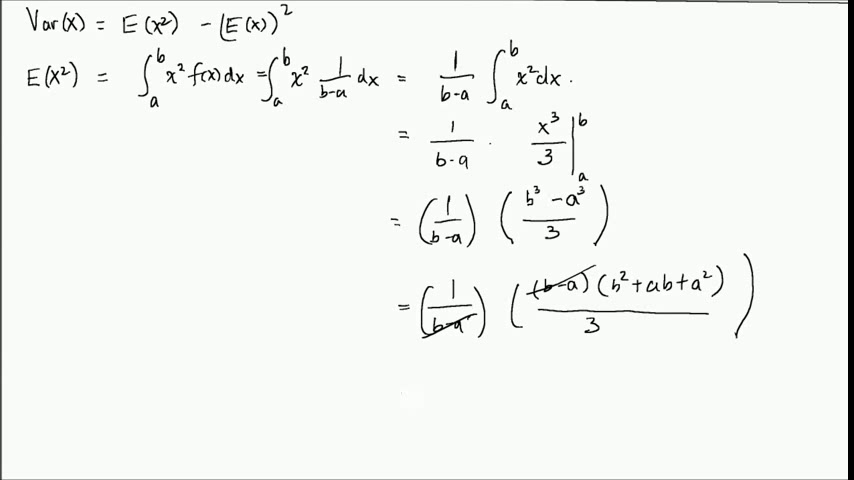 Var(x) = E(x²) - (E(x))²
E(X²) = ∫ₐᵇ x² f(x) dx = ∫ₐᵇ x² 1/(b-a) dx = 1/(b-a) ∫ₐᵇ x² dx.
= 1/(b-a) · x³/3 |ₐᵇ
= (1/(b-a)) ((b³ - a³)/3)
= (1/(b-a)) ((b-a)(b² + ab + a²)/3)